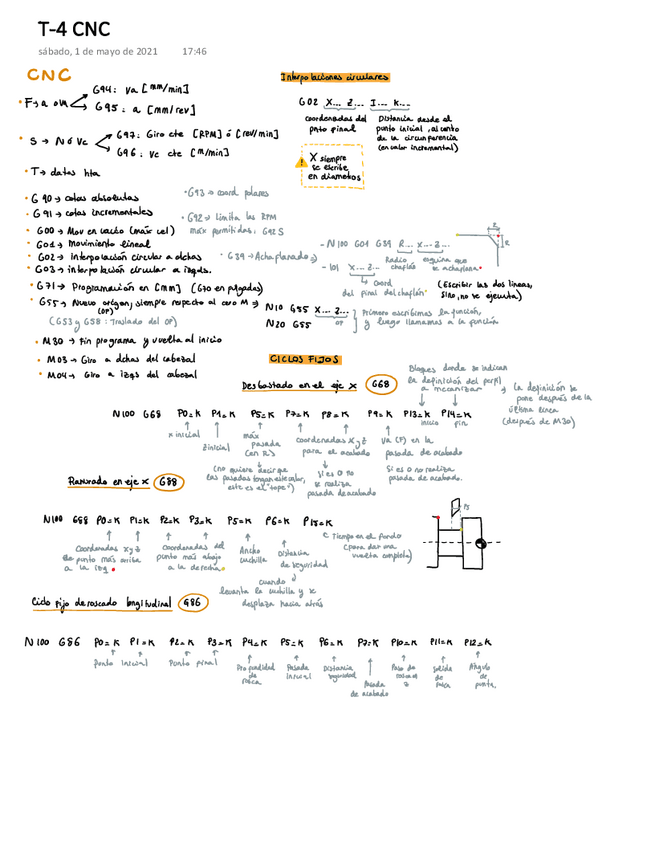 T-4 CNC
sábado, 1 de mayo de 2021 17:46
CNC
• F → a ó va
G94: va [mm/min]
G95: a [mm/rev]
• S → N ó Vc
G97: Giro cte [RPM] ó [rev/min]
G96: Vc cte [m/min]
• T → datos hta
• G90 → cotas absolutas
• G93 → coord polares
• G91 → cotas incrementales
• G92 → Limita las RPM
máx permitidas, G92 S
• G00 → Mov en vacío (máx vel)
• G01 → Movimiento lineal
• G02 → Interpolación circular a dchas
• G39 → Achaflanado →
• G03 → interpolación circular a izqds.
• G71 → Programación en [mm] (G70 en pulgadas)
• G55 → Nuevo origen, siempre respecto al cero M →
(OP)
(G53 y G58: Traslado del OP)
• M30 → Fin programa y vuelta al inicio
• M03 → Giro a dchas del cabezal
• M04 → Giro a izqs del cabezal
Interpolaciones circulares
G02 X... Z... I... K...
coordenadas del
pnto final
Distancia desde el
punto inicial, al cnto
de la circunferencia
(en valor incremental)
X siempre
se escribe
en diámetros
- N100 G01 G39 R... X... Z...
Radio
chaflán
esquina que
se achaflana
- 101 X... Z...
↳ coord
del pinal del chaflán
(Escribir las dos líneas,
sino, no se ejecuta)
R
N10 G55 X... Z...
OP
N20 G55
Primero escribimos la función,
y luego llamamos a la función
CICLOS FIJOS
Desbastado en el eje X G68
Bloques donde se indican
la definición del perfil
a mecanizar
↳ La definición se
pone después de la
última línea
(después de M30)
N100 G68 P0=K P1=K P5=K P7=K P8=K P9=K P13=K P14=K
x inicial
z inicial
máx
pasada
(en R)
coordenadas x y z
para el acabado
Va (F) en la
pasada de acabado
inicio
fin
(no quiere decir que
las pasadas tengan este valor,
este es el "tope")
Si es 0 no
se realiza
pasada de acabado
Si es 0 no realiza
pasada de acabado.
Ranurado en eje X G88
N100 G88 P0=K P1=K P2=K P3=K P5=K P6=K P15=K
Coordenadas x y z
de punto más arriba
a la izq
coordenadas del
punto más abajo
a la derecha
Ancho
cuchilla
Distancia
de seguridad
Tiempo en el fondo
(para dar una
vuelta completa)
P5
cuando
levanta la cuchilla y se
desplaza hacia atrás
Ciclo fijo de roscado longitudinal G86
N100 G86 P0=K P1=K P2=K P3=K P4=K P5=K P6=K P7=K P10=K P11=K P12=K
Punto Inicial
Punto pinal
Profundidad
de
rosca
Pasada
inicial
Distancia
seguridad
Pasada
de acabado
Paso de
rosca en
z
Salida
de
rosca
Ángulo
de
punta.